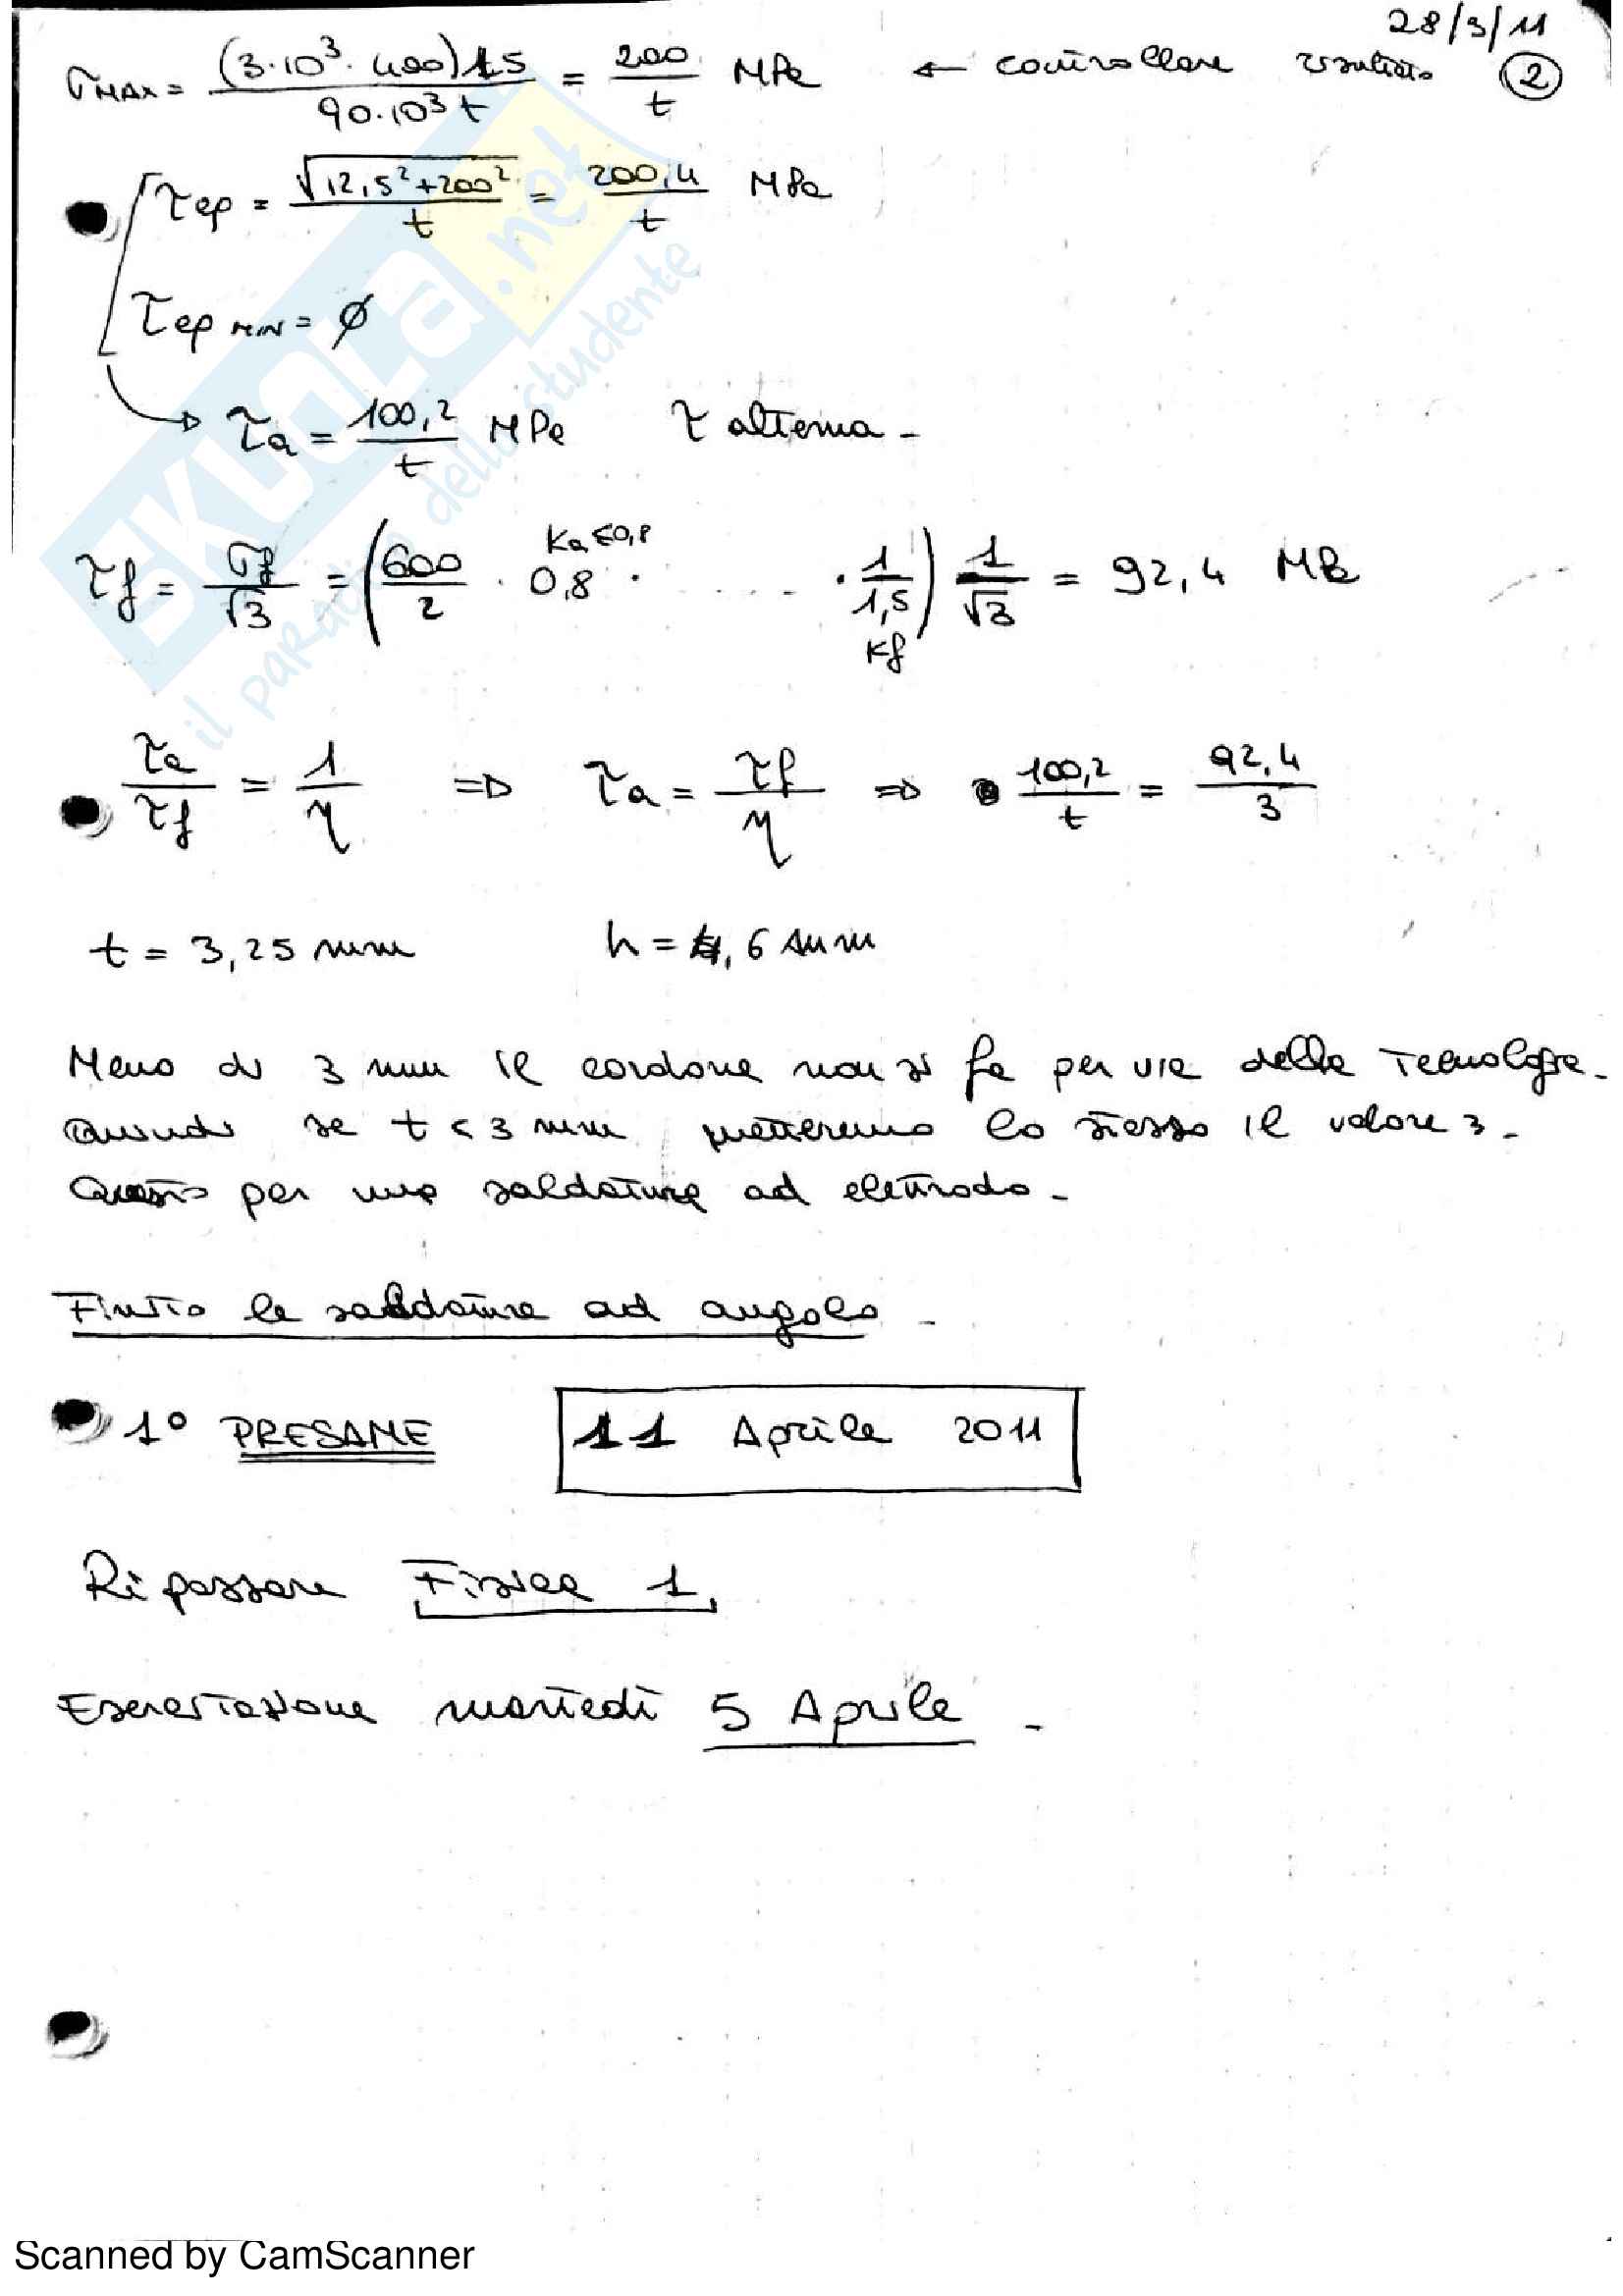 28/3/11
σMAX = (3·10³·400)15 / 90·10³t = 200/t MPa ← controllare risultato ②
τep = √(12,5²+200²) / t = 200,4/t MPa
τep MIN = ∅
→ τa = 100,2/t MPa τ alterna -
τf = σf/√3 = (600/2 · 0,8 · .... · 1/1,5) 1/√3 = 92,4 MPa
Kf
τa/τf = 1/η => τa = τf/η => 100,2/t = 92,4/3
t = 3,25 mm h = 4,6 mm
Meno di 3 mm il cordone non si fa per via della Tecnologia.
Quindi se t < 3 mm metteremo lo stesso il valore 3.
Questo per una saldatura ad elettrodo -
Finito le saldature ad angolo -
1° PRESAME 11 Aprile 2011
Ripassare Fisica 1
Esercitazione martedì 5 Aprile -
SKUOLA.net
il paradiso dello studente
Scanned by CamScanner